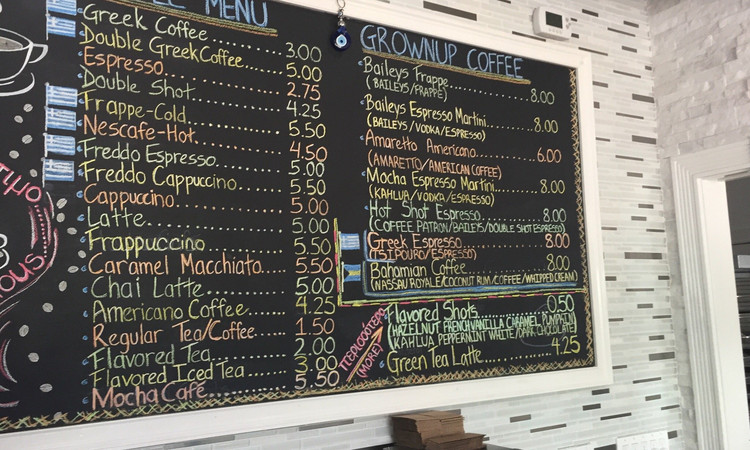 MENU
Greek Coffee 3.00
Double Greek Coffee 5.00
Espresso 2.75
Double Shot 4.25
Frappe-Cold 5.50
Nescafe-Hot 4.50
Freddo Espresso 5.00
Freddo Cappuccino 5.50
Cappuccino 5.00
Latte 5.00
Frappuccino 5.50
Caramel Macchiato 5.50
Chai Latte 5.00
Americano Coffee 4.25
Regular Tea/Coffee 1.50
Flavored Tea 2.00
Flavored Iced Tea 3.00
Mocha Café 5.50
GROWNUP COFFEE
Baileys Frappe 8.00
(BAILEYS/FRAPPE)
Baileys Espresso Martini 8.00
(BAILEYS/VODKA/ESPRESSO)
Amaretto Americano 6.00
(AMARETTO/AMERICAN COFFEE)
Mocha Espresso Martini 8.00
(KAHLUA/VODKA/ESPRESSO)
Hot Shot Espresso 8.00
(COFFEE PATRON/BAILEYS/DOUBLE SHOT ESPRESSO)
Greek Espresso 8.00
(TSIPOURO/ESPRESSO)
Bahamian Coffee 8.00
(NASSAU ROYALE/COCONUT RUM/COFFEE/WHIPPED CREAM)
ΠΕΡΙΣΣΌΤΕΡΟ
(MORE)
Flavored Shots 0.50
(HAZELNUT FRENCH VANILLA CARAMEL PUMPKIN
KAHLUA PEPPERMINT WHITE/DARK CHOCOLATE)
Green Tea Latte 4.25